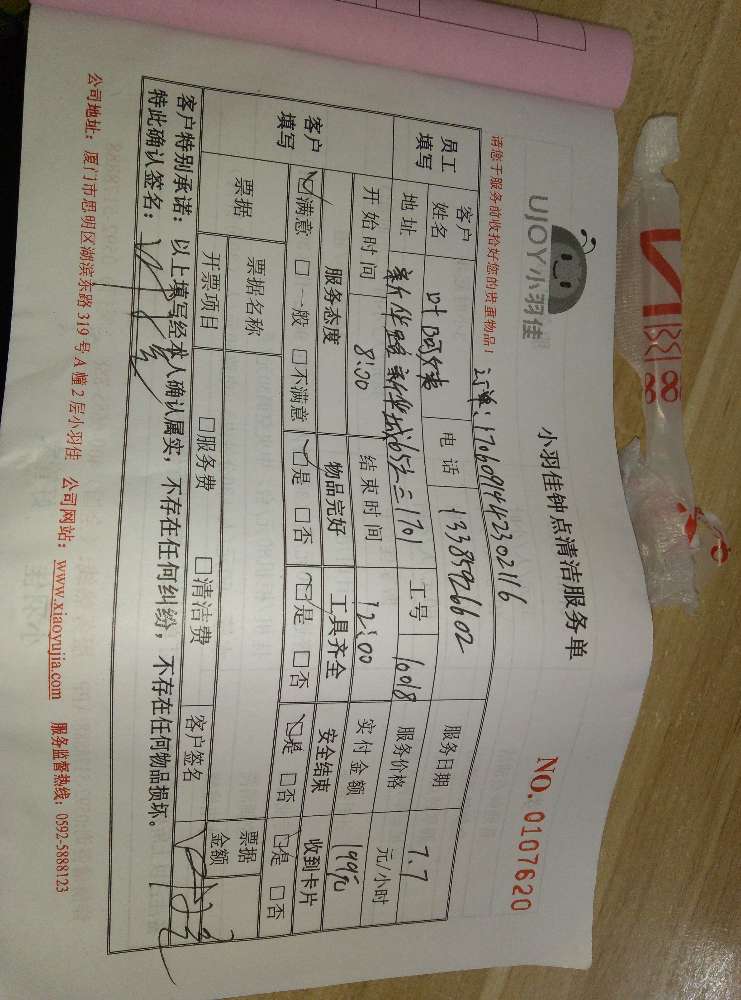 UJOY小羽佳
小羽佳钟点清洁服务单
NO. 0107620
请您于服务前收拾好您的贵重物品！
订单：1706091442302116
员工填写 客户姓名 叶阿 电话 13385926602 服务日期 7.7
地址 新华路新华城65之二1701 工号 16018 服务价格 元/小时
开始时间 8:00 结束时间 12:00 实付金额 199元
客户填写 服务态度 物品完好 工具齐全 安全结束 收到卡片
满意 一般 不满意 是 否 是 否 是 否 是 否
票据 票据名称 票据金额
开票项目 服务费 清洁费 客户签名
客户特别承诺：以上填写经本人确认属实，不存在任何纠纷，不存在任何物品损坏。
特此确认签名：
公司地址：厦门市思明区湖滨东路319号A幢2层小羽佳 公司网站：www.xiaoyujia.com 服务监督热线：0592-5888123